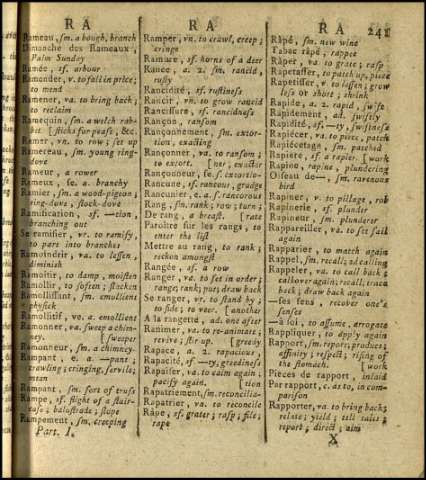 R A
R A
R A
241
Rameau, sm. a bough, branch
Dimanche des Rameaux,
Palm Sunday
Ramée, sf. arbour
Ramender, v. to fall in price;
to mend
Ramener, va. to bring back;
to reclaim
Ramequin, sm. a welch rab-
bet [sticks for peas, &c.
Ramer, vn. to row; set up
Ramereau, sm. young ring-
dove
Rameur, a rower
Rameux, se. a. branchy
Ramier, sm. a wood-pigeon,
ring-dove, stock-dove
Ramification, sf. —tion,
branching out
Se ramifier, vr. to ramify,
to part into branches
Ramoindrir, va. to lessen,
diminish
Ramoitir, to damp, moisten
Ramollir, to soften, slacken
Ramollissant, sm. emollient
physick
Ramollitif, ve. a. emollient
Ramonner, va. sweep a chim-
ney. [sweeper
Ramonneur, sm. a chimney-
Rampant, e. a. —pant;
crawling; cringing, servile;
mean
Rampant, sm. sort of truss
Rampe, sf. flight of a stair-
case; balustrade; slope
Rampement, sm. creeping
Part. I.
Ramper, vn. to crawl, creep;
cringe
Ramure, sf. horns of a deer
Rance, a. 2. sm. rancid,
rusty
Rancidité, sf. rustiness
Rancir, vn. to grow rancid
Rancissure, sf. rancidness
Rançon, ransom
Rançonnement, sm. extor-
tion, exacting
Rançonner, va. to ransom;
to extort. [ner, exacter
Rançonneur, se. s. extortio-
Rancune, sf. rancour, grudge
Rancunier, e. a. s. rancorous
Rang, sm. rank; row; turn;
De rang, a breast. [rate
Paroître sur les rangs, to
enter the list
Mettre au rang, to rank;
reckon amongst
Rangée, sf. a row
Ranger, va. to set in order;
range; rank; put; draw back
Se ranger, vr. to stand by;
to side; to veer. [another
A la rangette, ad. one after
Ranimer, va. to re-animate;
revive; stir up. [greedy
Rapace, a. 2. rapacious
Rapacité, sf. —ty, greediness
Rapaiser, va. to calm again,
pacify again. [tion
Rapatriement, sm. reconcilia-
Rapatrier, va. to reconcile
Râpe, sf. grater; rasp; file;
rape
Râpé, sm. new wine
Tabac râpé, rappee
Râper, va. to grate; rasp
Rapetasser, to patch up, piece
Rapetisser, v. to lessen; grow
less or short; shrink
Rapide, a. 2. rapid, swift
Rapidement, ad. swiftly
Rapidité, sf. —ty, swiftness
Rapiécer, va. to piece, patch
Rapiécetage, sm. patched
Rapiere, sf. a rapier. [work
Rapine, rapine, plundering
Oiseau de—, sm. ravenous
bird
Rapiner, v. to pillage, rob
Rapinerie, sf. plunder
Rapineur, sm. plunderer
Rappareiller, va. to set sail
again
Rapparier, to match again
Rappel, sm. recall; ad calling
Rappeler, va. to call back;
call over again; recall; trace
back; draw back again
—ses sens, recover one's
senses
—à soi, to assume, arrogate
Rappliquer, to apply again
Rapport, sm. report; produce;
affinity; respect; rising of
the stomach. [work
Pieces de rapport, inlaid
Par rapport, c. as to, in com-
parison
Rapporter, va. to bring back;
relate; yield; tell tales;
report; direct; aim
X